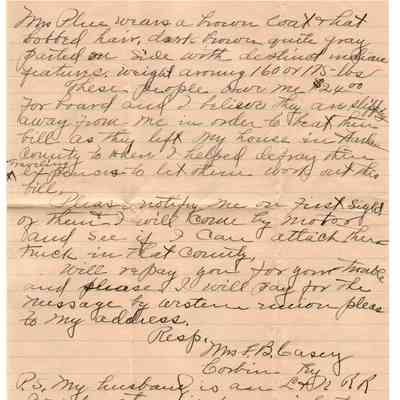 Mrs Plue wears a brown coat & hat
bobbed hair, dark brown quite gray
parted on side with destinct indian
features. weight arming 160 or 175-lbs
These people owe me $24.00
for board and I believe they are slipping
away from me in order to beat their
bill as they left my house in Harlan
County to when I helped defray their
traveling expenses to let them work out this
bill.
Pleas notify me on first sight
of them & I will come by motor
and see if I can attach there
truck in that county.
Will repay you for your trouble
and please I will pay for the
message by western union pleas
to my address.
Resp.
Mrs F. B. Casey
Corbin Ky
P.S. My husband is an L & N RR